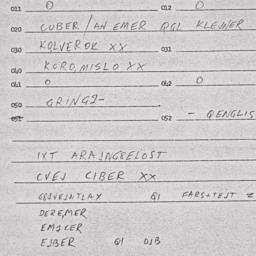 011 0 012 0
020 CUBER / AN EMER QGI KLEJNER
030 KOLVEROK XX 031
040 KORO, MISLO XX
041 0 042 0
050 GRINGI-
051 052 - QENGLIS
IXT ARAINGEELOST
CVEJ CIBER XX
QI FARS+TEJT
DEREMER
EMJCER
EJBER QI OJB